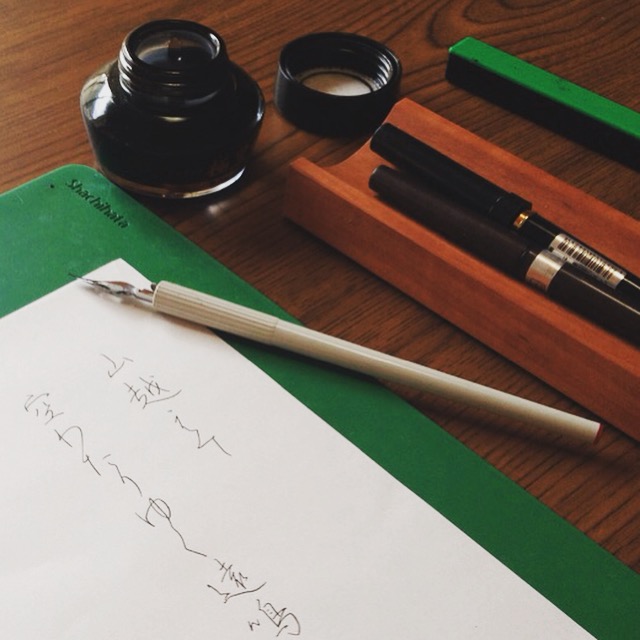 Shachihata
山越えて
空わたりゆく遠鳴